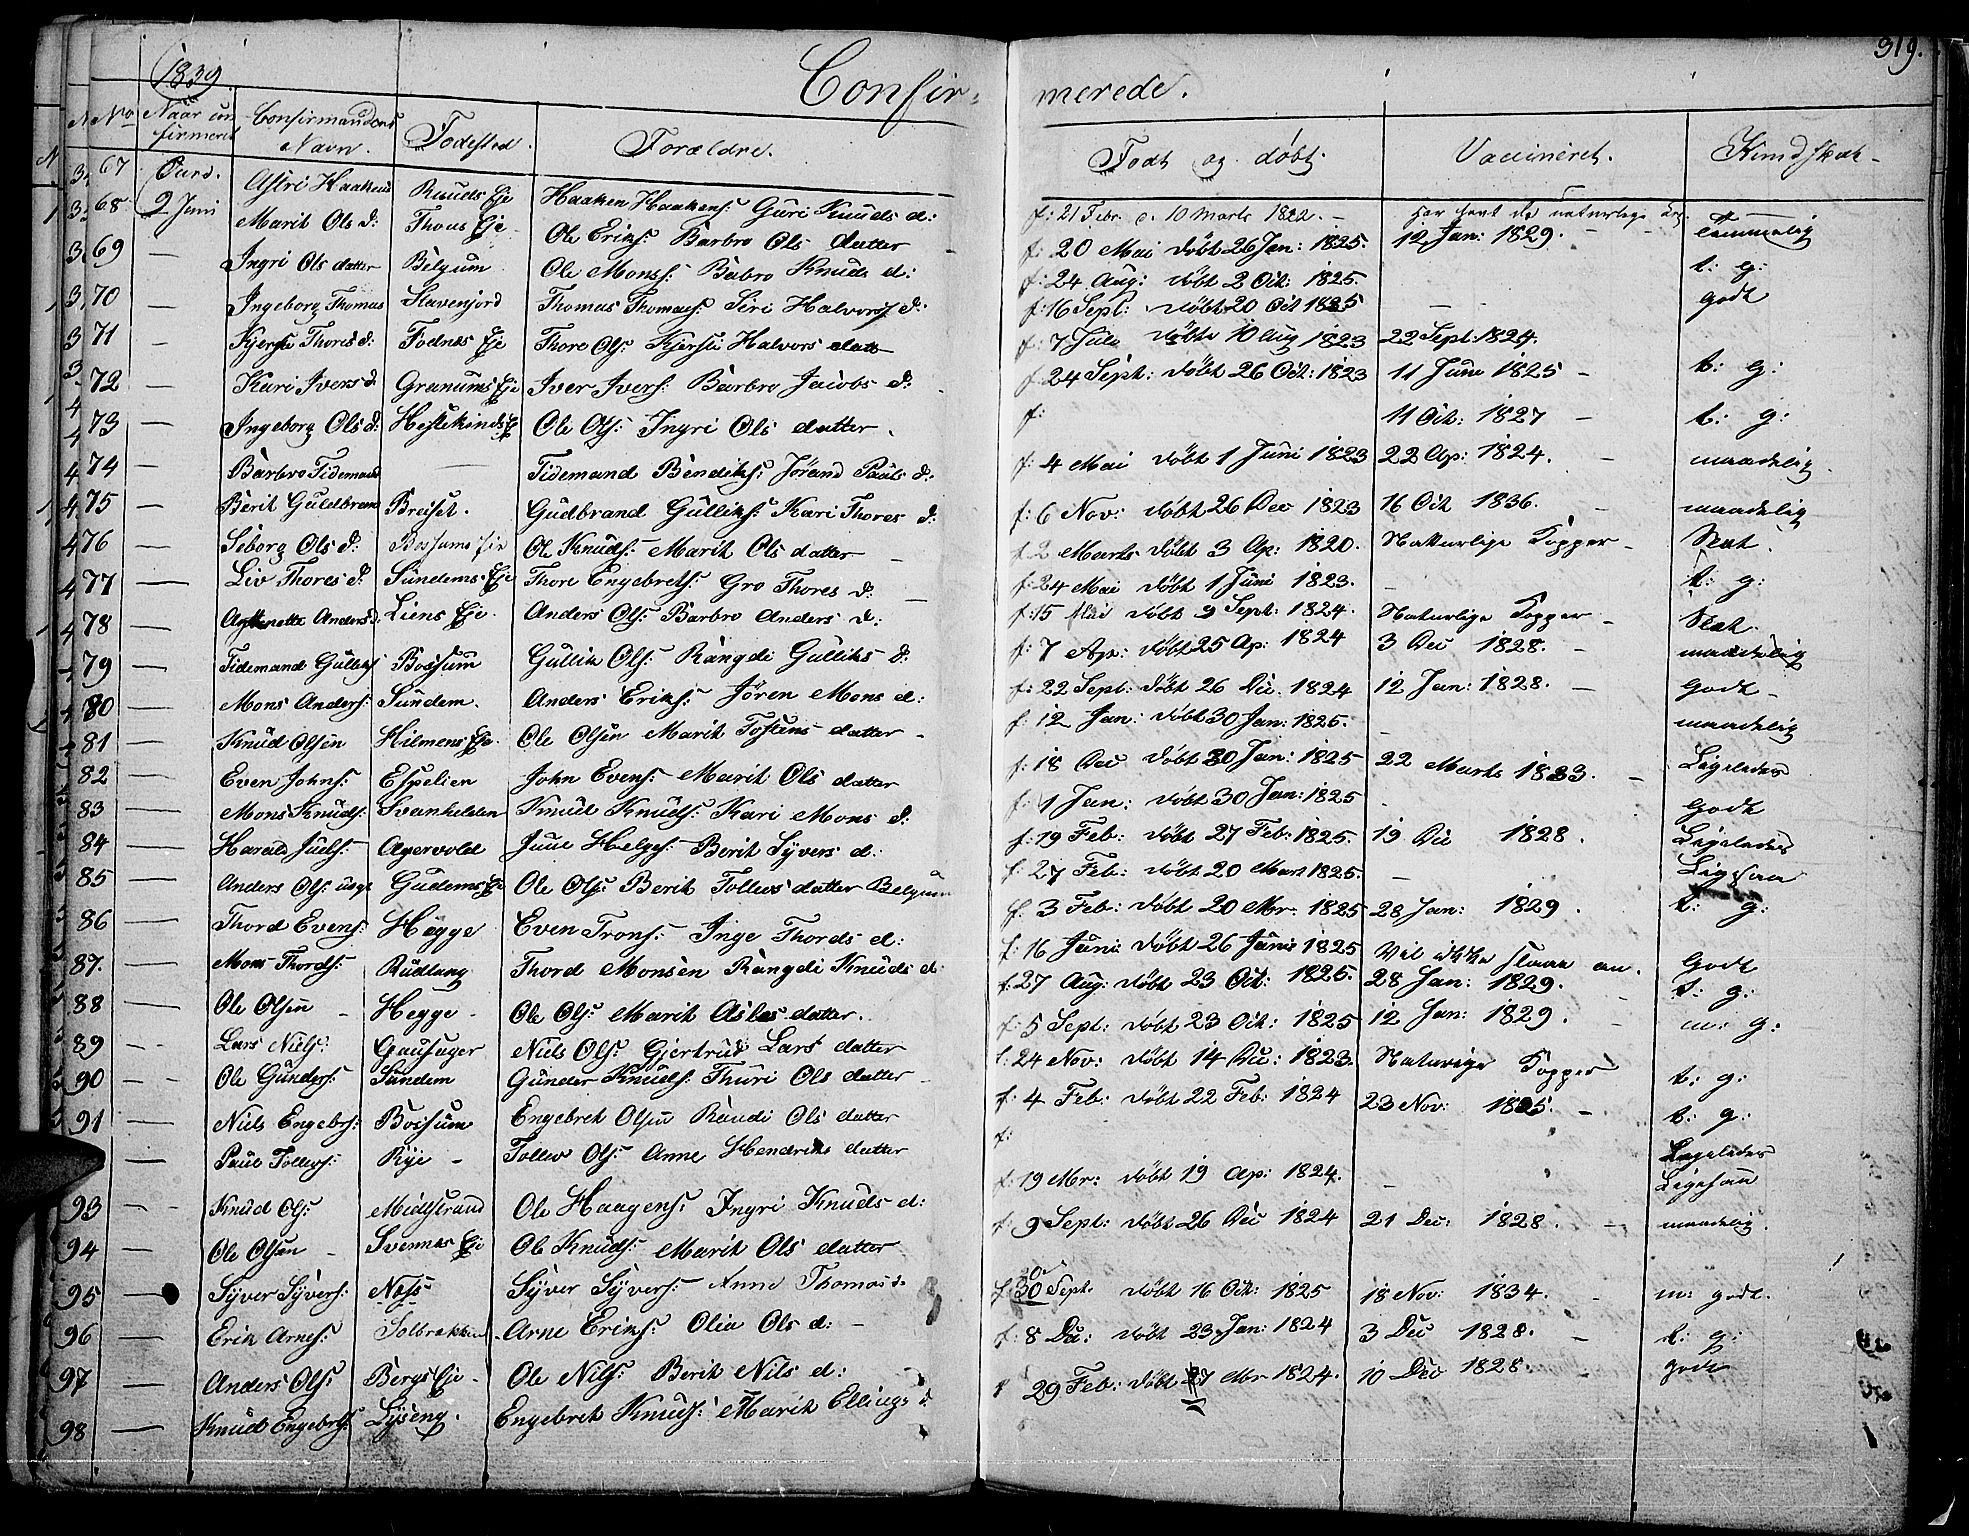 1839.
Confir- merede.
319.
No Naar con Confirmandens Fødested. Forældre. Født og døbt. Vaccineret. Kundskab
firmeret Navn.
67 Aurd. Astri Haakens Ruuds Eje Haaken Haakens: Guri Knuds d: f: 21 Febr. d. 10 Marts 1822. har havt de naturlige Kop. Temmelig
68 2 Juni Marit Ols d: Thons Eje Ole Eriks: Barbro Ols datter f: 20 Mai døbt 26 Jun: 1825. 12 Jan: 1829. t: g:
69 — Ingri Ols datter Belgum Ole Monss: Babro Knuds d: f: 24 Aug: døbt 2 Oct: 1825. godt
70 — Ingeborg Thomas Slavenjord Thomas Thomass: Siri Halvors d: f: 16 Sept: døbt 20 Oct 1825 —
71 — Kjersti Thores d: Fodnes Eje Thore Ols: Kjersti Halvors datt f: 7 Jule døbt 10 Aug 1823 22 Sept: 1824. t: g:
72 — Kari Ivers d: Granums Eje Iver Ivers: Barbro Jacobs d: f: 24 Sept: døbt 26 Oct: 1823 11 Juni 1825 — t: g:
73 — Ingeborg Ols d: Hestekinds E Ole Ols: Ingri Ols datter. f: 11 Oct: 1827 — maadelig
74 — Barbro Tidemand — Tidemand Bendiks: Jørand Pauls d: f: 4 Mai døbt 1 Juni 1823 22 Ap: 1824. — maadelig
75 — Berit Guldbrand Breiset. Gudbrand Gulliks: Kari Thores d: f: 6 Nov: døbt 26 Dec 1823 16 Oct 1836. Slat.
76 — Siborg Ols d: Bossums Eje Ole Knuds: Marit Ols datter — f: 2 Marts døbt 3 Ap: 1820. Naturlige Kopper — t: g:
77 — Liv Thores d: Sundems Eje Thore Engebrets: Gro Thores d: — f: 24 Mai døbt 1 Juni 1823. Slat.
78 — Anders d: Liens Eje. Anders Ols: Barbro Anders d: f: 15 Mai døbt 9 Sept: 1824. Naturlige Kopper — maadelig
79 — Tidemand Gulliks Bossum Gullik Ols: Rangdi Gulliks d: f: 7 Ap: døbt 25 Ap: 1824 3 Dec 1828. — godt —
80 — Mons Anders: Sundem. Anders Eriks: Jören Mons d: f: 22 Sept: døbt 26 Dec. 1824 12 Jan: 1828. — maadelig
81 — Knud Olsen Hilmens Eje. Ole Olsen Marit Tostens datter — f: 12 Jan: døbt 30 Jan: 1825. — Ligeledes
82 — Even Johns: Espelien John Evens: Marit Ols datter f: 18 Dec døbt 30 Jan: 1825 22 Marts 1833. — godt
83 — Mons Knuds: Svanhelden Knud Knuds: Kari Mons d: f: 1 Jan: døbt 30 Jan: 1825 Ligeledes
84 — Harald Juels: Agervold Juul Helges: Berit Syvers d: f: 19 Feb: døbt 27 Feb: 1825. 19 Dec 1828. Ligesaa
85 — Anders Ols: Gudems Eje Ole Ols: Berit Tollevs datter Belgum f: 27 Feb: døbt 20 Mart 1825. — t: g:
86 — Thord Evens: Hegge Even Trons: Inge Thords d: f: 3 Feb: døbt 20 Mr: 1825 28 Jan: 1829. godt
87. — Mons Thords: Rudlang Thord Monsen Rangdi Knuds d: f: 16 Juni døbt 26 Juni 1825 Vil ikke slaae an. t: g:
88 — Ole Olsen — Hegge — Ole Ols: Marit Asles datter. f: 27 Aug: døbt 23 Oct: 1825. 28 Jan: 1829. m: g:
89 — Lars Niels: Gausager Niels Ols: Gjertrud Lars datter f: 5 Sept: døbt 23 Oct: 1825 12 Jan: 1829. t: g:
90 — Ole Gunders: Sundem Gunder Knuds: Thuri Ols datter — f: 24 Nov: døbt 14 Dec: 1823. Naturlige Kopper t: g:
91 — Niels Engebrs: Bossum Engebret Olsen Randi Ols datter f: 4 Feb: døbt 22 Feb: 1824 23 Nov: 1825. — Ligeledes
— Paul Tollevs: Rye — Tollev Ols: Anne Hendriks datter f: Ligesaa
93 — Knud Ols: Midstrand Ole Haagens: Ingri Knuds d: f: 19 Mr: døbt 19 Ap: 1824. — maadelig.
94 — Ole Olsen — Svennes Eje Ole Knuds: Marit Ols datter f: 9 Sept: døbt 26 Dec 1824 21 Dec: 1828. —
95 — Syver Syvers: Ness Syver Syvers: Anne Thomas d f: 30 Sept. døbt 16 Oct: 1825 18 Nov: 1834. — m: godt.
96 — Erik Arnes: Solbrekken Arne Eriks: Olia Ols d: — f: 8 Dec: døbt 23 Jan: 1824 3 Dec 1828. — t: g:
97 — Anders Ols: Bergs Eje — Ole Nils: Berit Nils d: f 29 Feb: døbt 27 Mr 1824. 10 Dec 1828. — godt
98 — Knud Engebrets: Lyseng. Engebret Knuds: Marit Ellings d